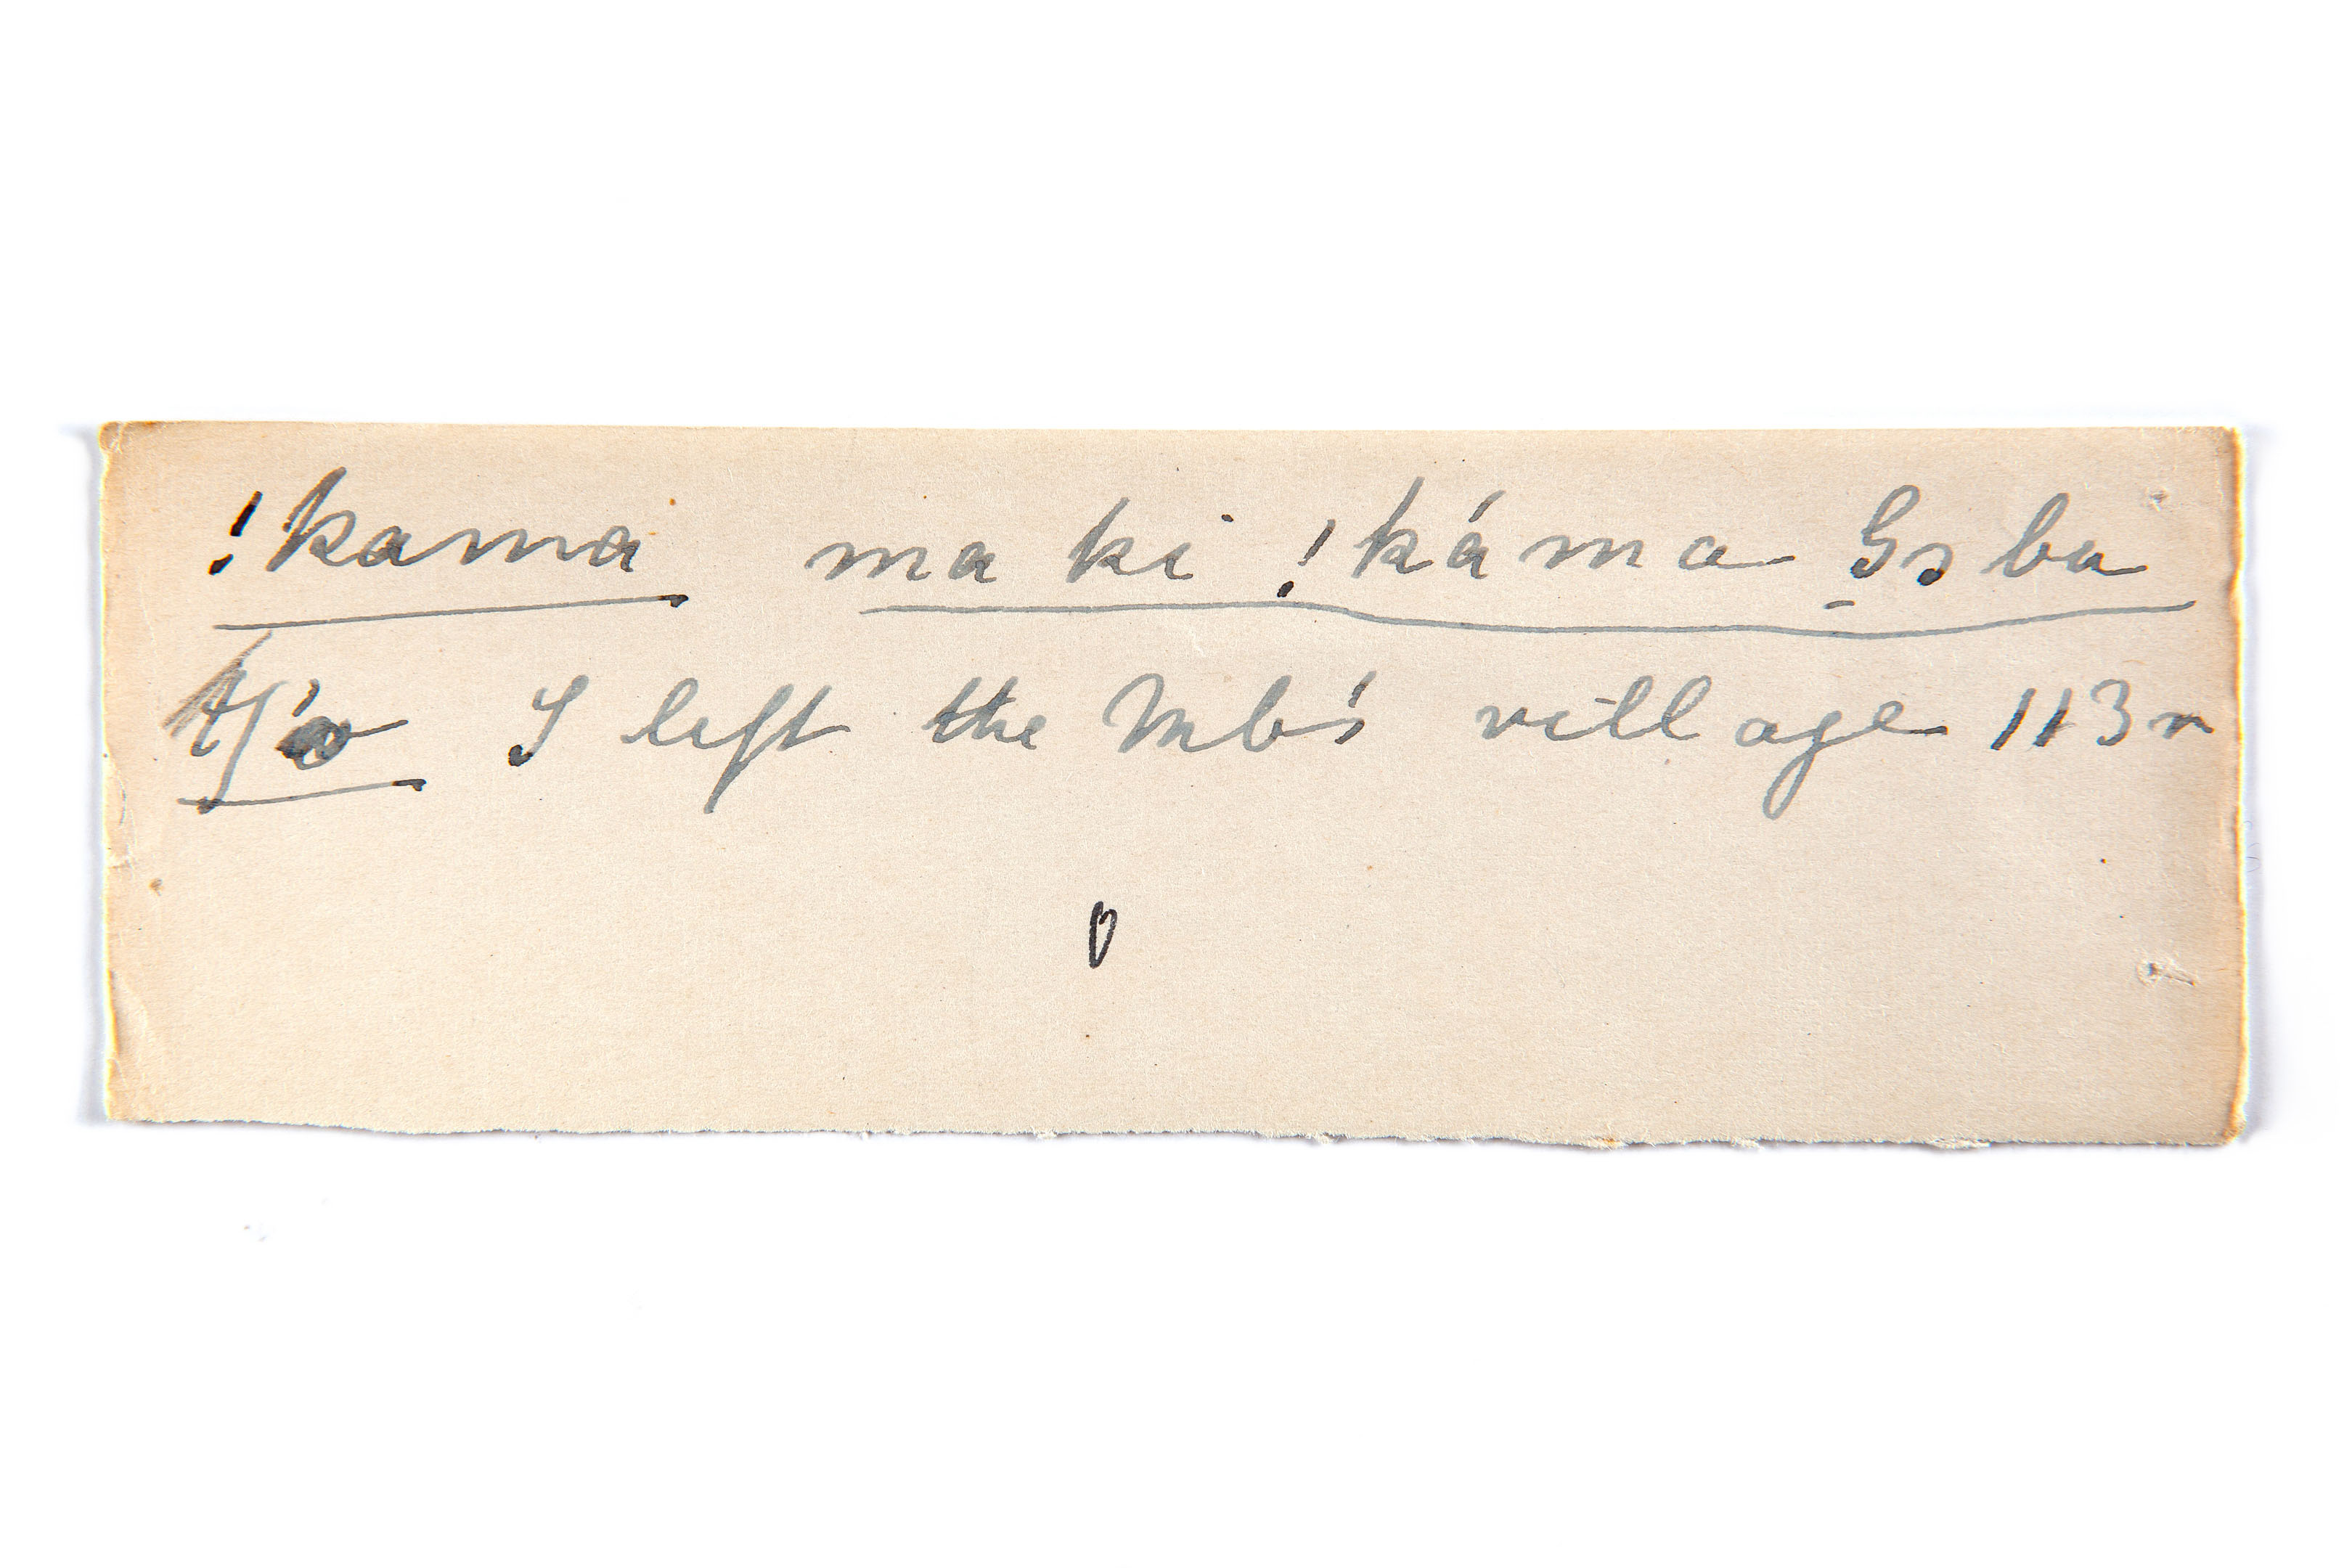 !kama ma ki !káma Gɔba
I left the Mb's village 113r
0